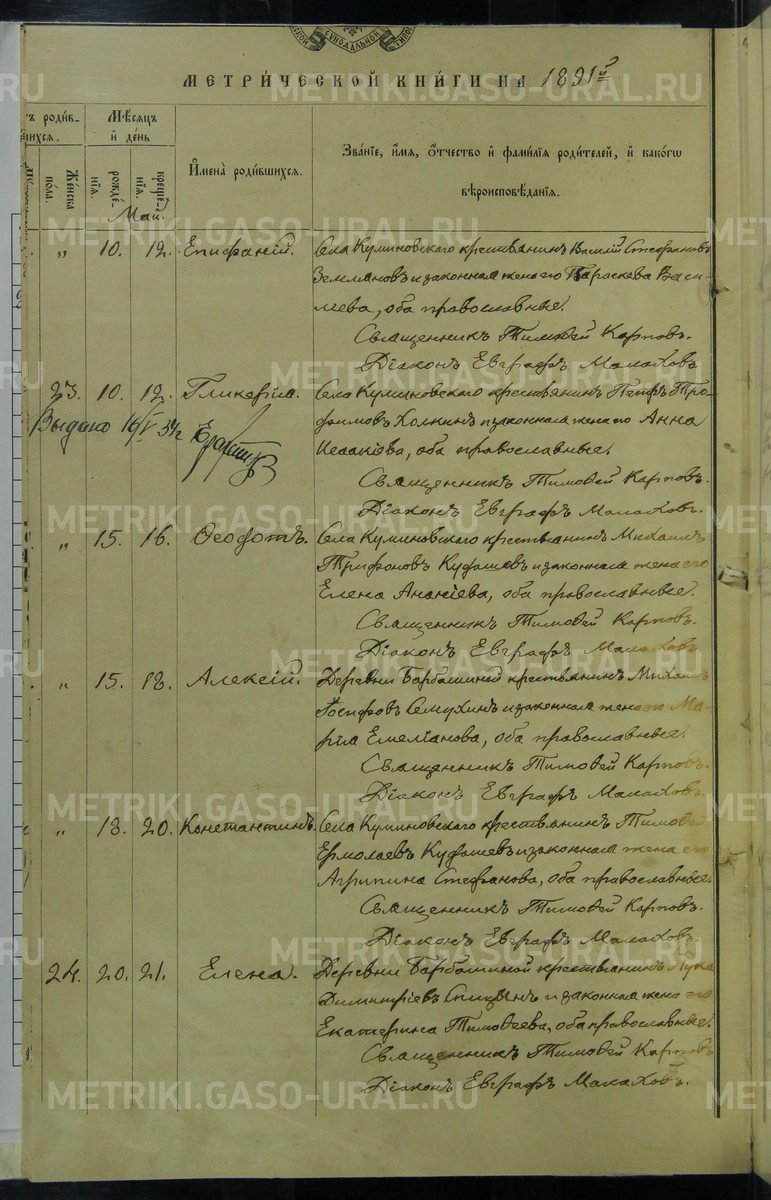 СУНОДАЛЬНОЙ
МЕТРИ́ЧЕСКОЙ КНИ́ГИ НА 1891й
родив-
шихся.
Мѣсяцъ
и день
Женска
пола.
рожде-
нія.
креще-
нія.
Имена родившихся.
Званіе, имя, отчество и фамилія родителей, и какого
вѣроисповѣданія.
Май.
„ 10. 12. Епифаній. Села Куминовскаго крестьянинъ Василій Стефановъ
Землановъ и законная жена его Параскева Васи-
лиева, оба православные.
Священникъ Тимоѳей Карповъ.
Діаконъ Евграфъ Малаховъ
23. 10. 12. Гликерія. Села Куминовскаго крестьянинъ Петръ Тро-
фимовъ Холкинъ и законная жена его Анна
Выдано 16/V 54г
Исаакіова, оба православные.
Священникъ Тимоѳей Карповъ.
Діаконъ Евграфъ Малаховъ.
„ 15. 16. Ѳеодотъ. Села Куминовскаго крестьянинъ Михаилъ
Трифоновъ Куфашевъ и законная жена его
Елена Ананіева, оба православные.
Священникъ Тимоѳей Карповъ.
Діаконъ Евграфъ Малаховъ
„ 15. 18. Алексій. Деревни Барбашиной крестьянинъ Михаилъ
Іосифовъ Семухинъ и законная жена его Ма-
рія Емеліанова, оба православные.
Священникъ Тимоѳей Карповъ.
Діаконъ Евграфъ Малаховъ.
„ 18. 20. Константинъ. Села Куминовскаго крестьянинъ Тимоѳей
Ермолаевъ Куфашевъ и законная жена его
Агрипина Стефанова, оба православные.
Священникъ Тимоѳей Карповъ.
Діаконъ Евграфъ Малаховъ.
24. 20. 21. Елена. Деревни Барбашиной крестьянинъ Лука
Димитріевъ и законная жена его
Екатерина Тимоѳеева, оба православные.
Священникъ Тимоѳей Карповъ
Діаконъ Евграфъ Малаховъ.
METRIKI.GASO-URAL.RU